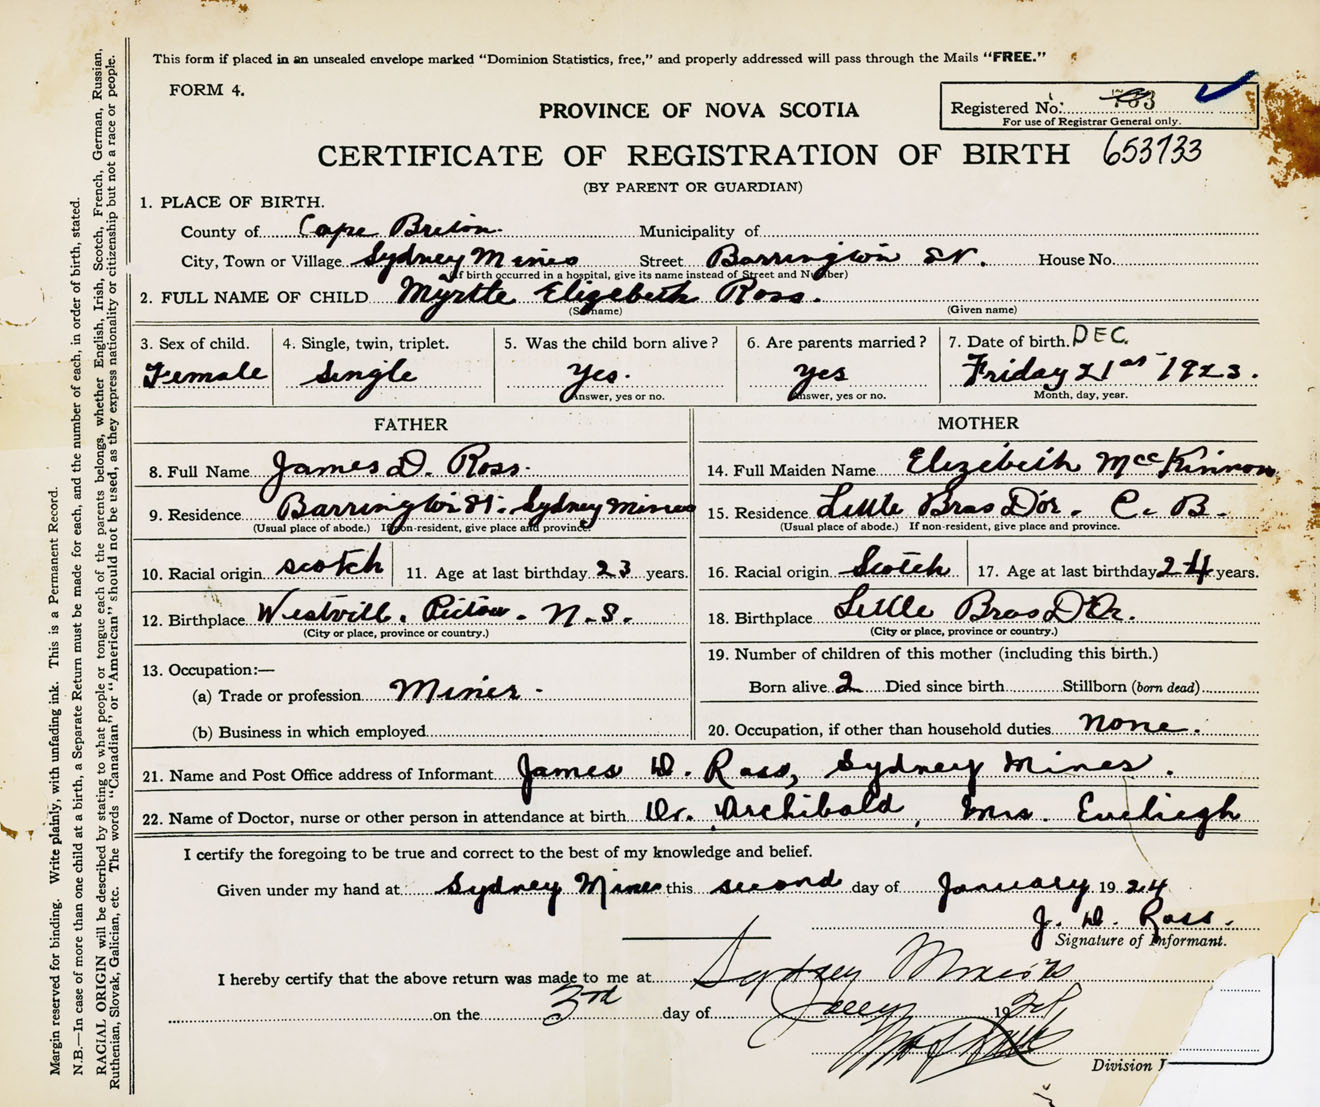 This form if placed in an unsealed envelope marked "Dominion Statistics, free," and properly addressed will pass through the Mails "FREE."
FORM 4.
Registered No.
For use of Registrar General only.
PROVINCE OF NOVA SCOTIA
CERTIFICATE OF REGISTRATION OF BIRTH 653733
(BY PARENT OR GUARDIAN)
1. PLACE OF BIRTH.
County of Cape Breton. Municipality of
City, Town or Village Sydney Mines Street Barrington St. House No.
(If birth occurred in a hospital, give its name instead of Street and Number)
2. FULL NAME OF CHILD Myrtle Elizebeth Ross.
(Surname) (Given name)
3. Sex of child. 4. Single, twin, triplet. 5. Was the child born alive? 6. Are parents married? 7. Date of birth. DEC.
Female Single Yes. Yes Friday 21st 1923.
Answer, yes or no. Answer, yes or no. Month, day, year.
FATHER MOTHER
8. Full Name James D. Ross. 14. Full Maiden Name Elizebeth McKinnon
9. Residence Barrington St. Sydney Mines 15. Residence Little Bras D'or. C. B.
(Usual place of abode.) If non-resident, give place and province. (Usual place of abode.) If non-resident, give place and province.
10. Racial origin scotch 11. Age at last birthday 23 years. 16. Racial origin Scotch 17. Age at last birthday 24 years.
12. Birthplace Westvill. Pictou. N.S. 18. Birthplace Little Bras D'Or.
(City or place, province or country.) (City or place, province or country.)
13. Occupation:— 19. Number of children of this mother (including this birth.)
(a) Trade or profession Miner. Born alive 2 Died since birth Stillborn (born dead)
(b) Business in which employed 20. Occupation, if other than household duties none.
21. Name and Post Office address of Informant James D. Ross, Sydney Mines.
22. Name of Doctor, nurse or other person in attendance at birth Dr. Archibald, Mrs. Eveliegh
I certify the foregoing to be true and correct to the best of my knowledge and belief.
Given under my hand at Sydney Mines this second day of January 1924
J. D. Ross.
Signature of Informant.
I hereby certify that the above return was made to me at Sydney Mines
on the 3rd day of 1924
Division
Margin reserved for binding. Write plainly, with unfading ink. This is a Permanent Record.
N.B.—In case of more than one child at a birth, a Separate Return must be made for each, and the number of each, in order of birth, stated.
RACIAL ORIGIN will be described by stating to what people or tongue each of the parents belongs, whether English, Irish, Scotch, French, German, Russian,
Ruthenian, Slovak, Galician, etc. The words "Canadian" or "American" should not be used, as they express nationality or citizenship but not a race or people.